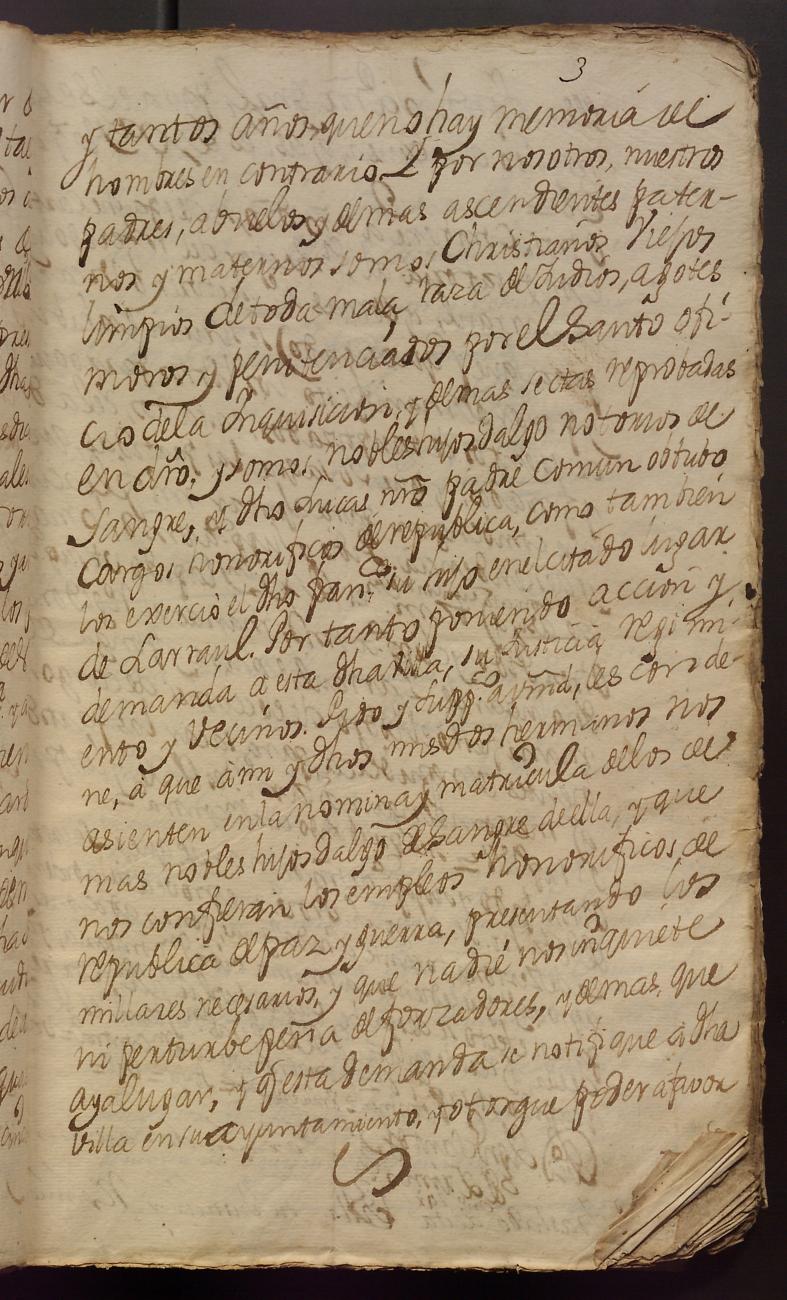 3
y tantos años, que no hay memoria de
hombres en contrario. Y por nosotros, nuestros
padres, abuelos, y demas ascendientes pater-
nos y maternos somos Christianos Viejos
limpios de toda mala raza de Judios, agotes
moros, y penitenciados por el Santo ofi-
cio dela Inquisicion, y demas sectas reprobadas
en dro. y somos nobles hijosdalgo notorios de
Sangre, y dho Lucas nro padre comun obtubo
Cargos honorificos de republica, como tambien
los exercio el dho Franco. su hijo en el citado lugar
de Larraul. Por tanto poniendo accion y
demanda a esta dha Villa, su Justicia, regimi-
ento y Vecinos. Pido y suppco. a vmd, les conde-
ne, a que a mi y dhos mis dos hermanos nos
asienten en la nomina y matricula delos de
mas nobles hijosdalgo de Sangre de ella, y que
nos confieran los empleos honorificos de
republica de paz y guerra, presentando los
millares necesarios, y que nadie nos inquiete
ni perturbe pena de forzadores, y demas que
aya lugar, y q esta demanda se notifique a dha
Villa en su ayuntamiento, y otorgue poder a favor